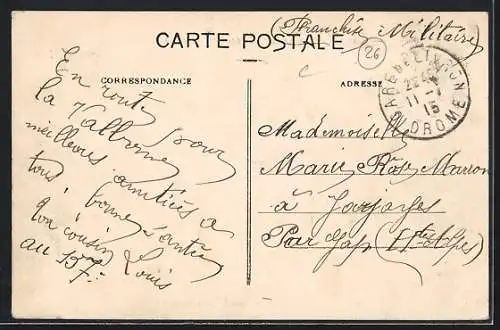 (Franchise Militaire)
CARTE POSTALE
26
CORRESPONDANCE
ADRESSE
GARE DE LIVRON
22
11 - 7
15
DROME
En route pour
la Valbonne
meilleures amitiés à
tous, bonne santé
Ton cousin Louis
au 157e
Mademoiselle
Marie Rose Marron
à Jarjayes
Par Gap (Htes Alpes)